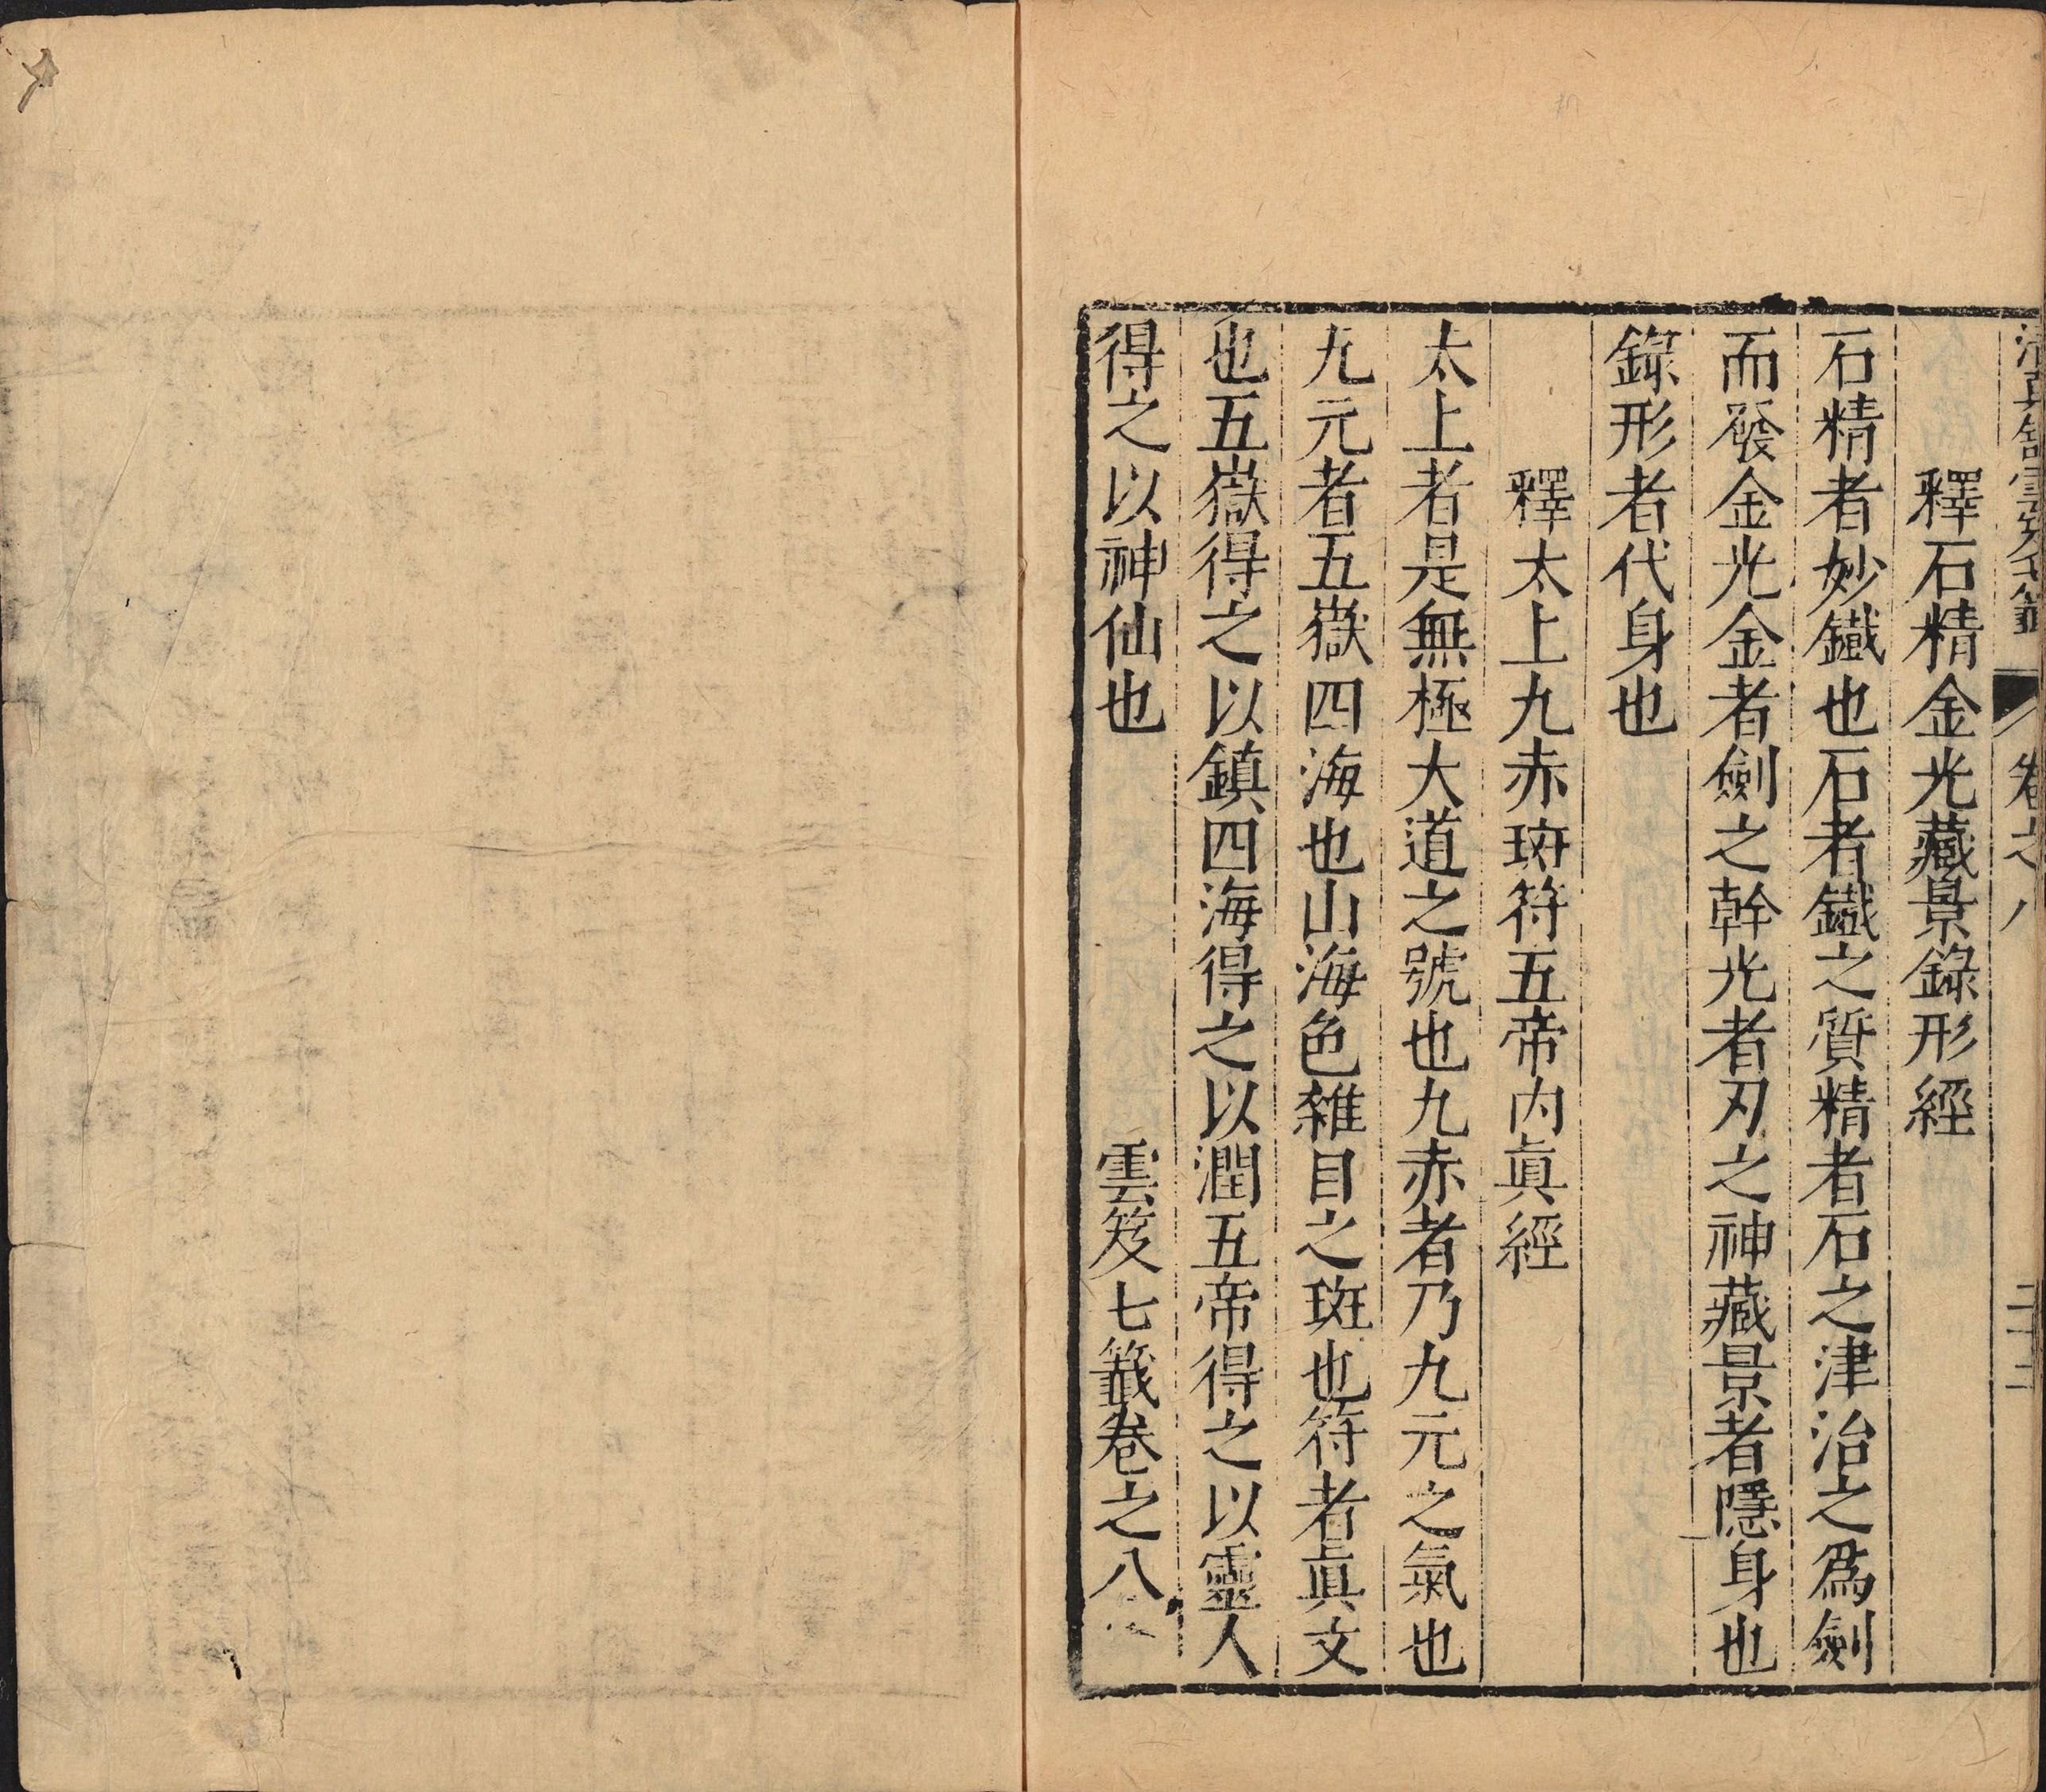 卷之八
二十二
釋石精金光藏景錄形經
石精者妙鐵也石者鐵之質精者石之津治之爲劍
而發金光金者劍之幹光者刃之神藏景者隱身也
錄形者代身也
釋太上九赤斑符五帝內眞經
太上者是無極大道之號也九赤者乃九元之氣也
九元者五嶽四海也山海色雜目之斑也符者眞文
也五嶽得之以鎮四海得之以潤五帝得之以靈人
得之以神仙也
雲笈七籤卷之八